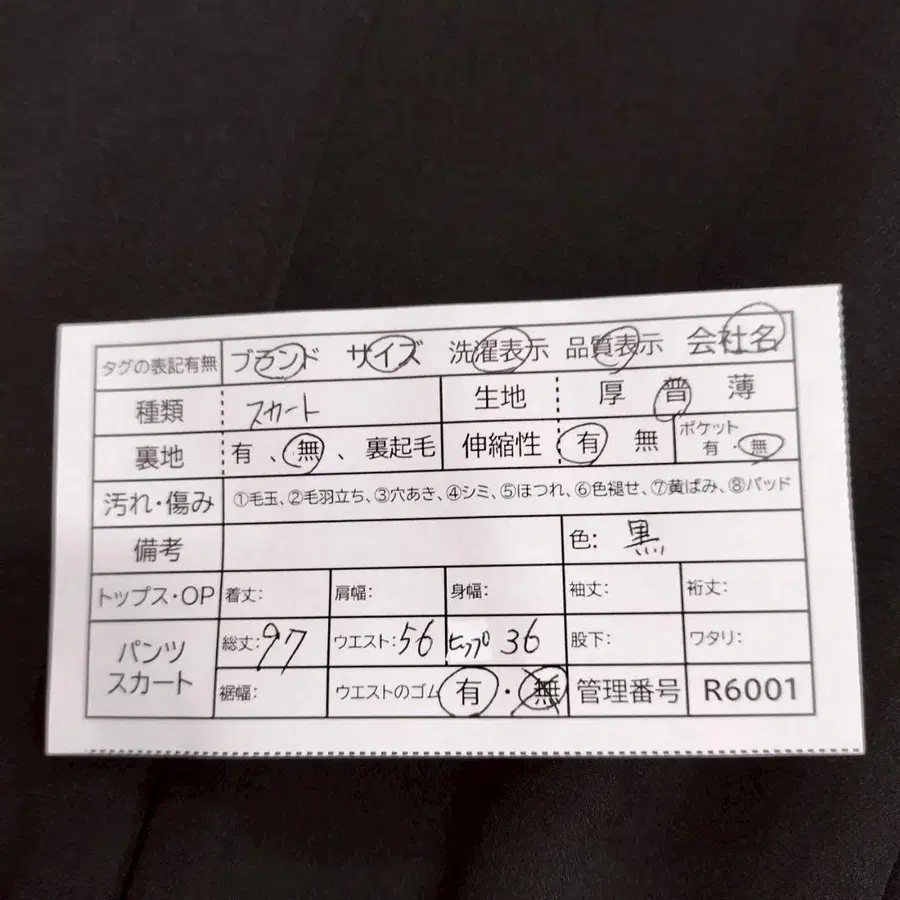 タグの表記有無 ブランド サイズ 洗濯表示 品質表示 会社名
種類 スカート 生地 厚 普 薄
裏地 有、無、裏起毛 伸縮性 有 無 ポケット 有・無
汚れ・傷み ①毛玉、②毛羽立ち、③穴あき、④シミ、⑤ほつれ、⑥色褪せ、⑦黄ばみ、⑧パッド
備考 色: 黒
トップス・OP 着丈: 肩幅: 身幅: 袖丈: 裄丈:
パンツ スカート 総丈: 97 ウエスト: 56 ヒップ 36 股下: ワタリ:
裾幅: ウエストのゴム 有・無 管理番号 R6001